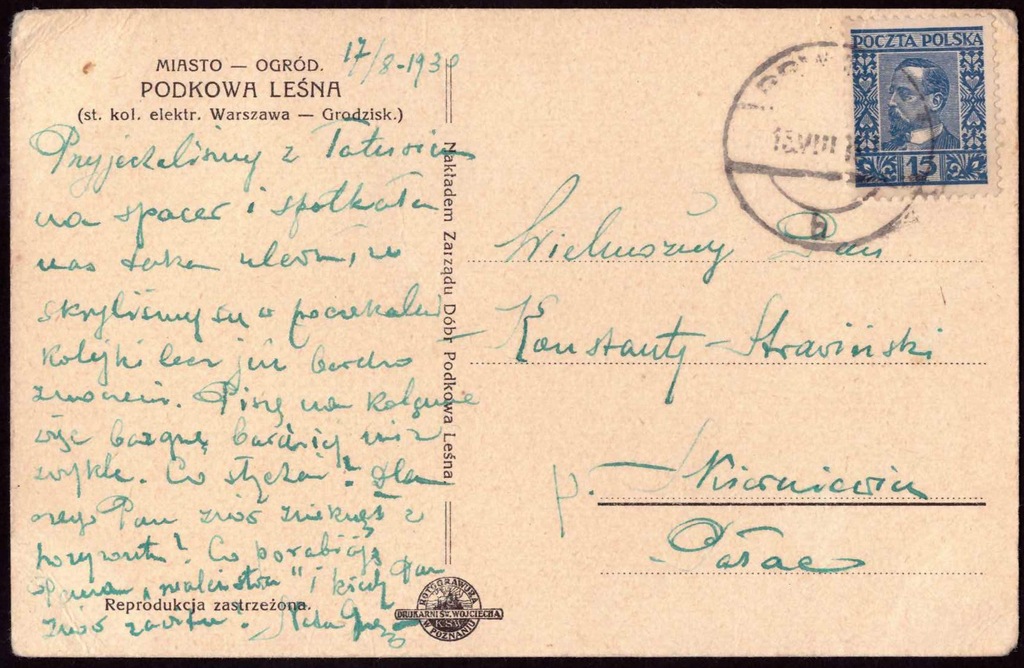 MIASTO — OGRÓD.
PODKOWA LEŚNA
(st. kol. elektr. Warszawa — Grodzisk.)
17/8-1930
Przyjechaliśmy z Tatusiem
na spacer i spotkała
nas taka ulewa, że
skryliśmy się w poczekalni
kolejki lecz już bardzo
zmoczeni. Piszę na kolanie
więc bazgrzę bardziej niż
zwykle. Co słychać? Dla
czego Pan znów zniknął z
horyzontu? Co porabiają
Pana „maleństwa" i kiedy Pan
znów zawita?
Reprodukcja zastrzeżona.
Nakładem Zarządu Dóbr Podkowa Leśna
ROTOGRAWURA
DRUKARNI ŚW. WOJCIECHA
K.S.W.
W POZNANIU
POCZTA POLSKA
15
VIII
b
Wielmożny Pan
Konstanty Straviński
p. Skierniewice
Pałac